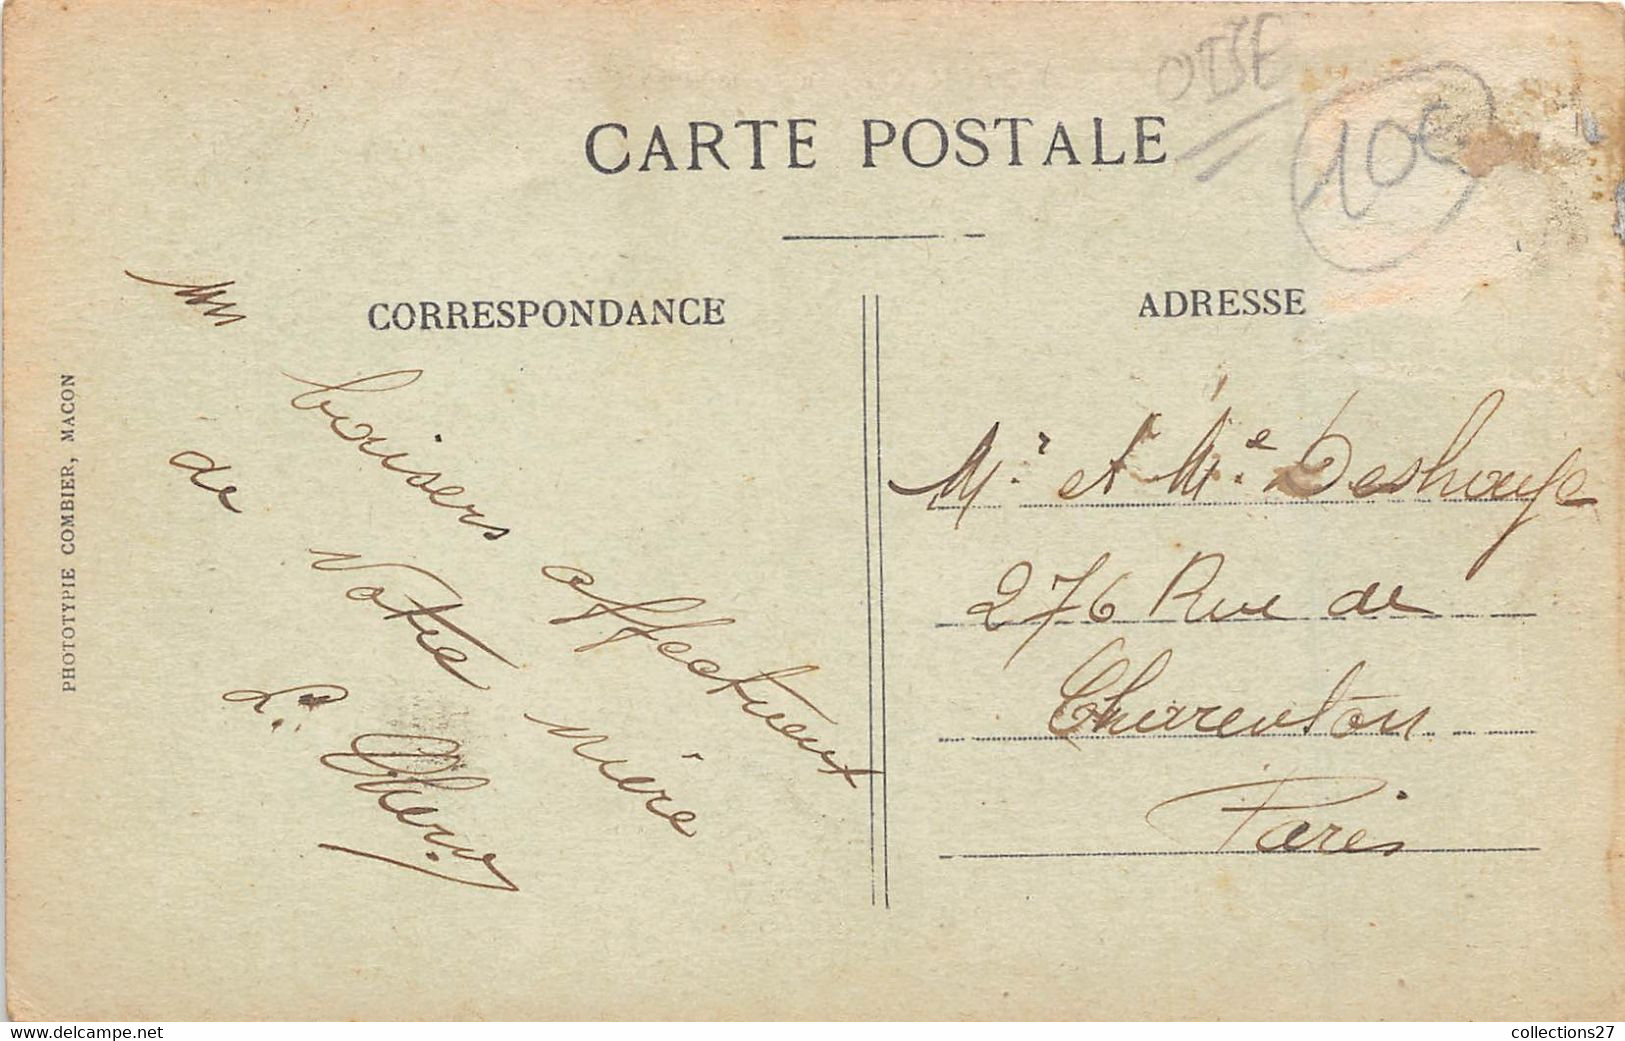 OISE
10€
CARTE POSTALE
CORRESPONDANCE
ADRESSE
PHOTOTYPIE COMBIER, MACON
baisers affectueux
de Votre mère
L.
Mr. et Me. Deshouye
276 Rue de
Charenton
Paris
www.delcampe.net
collections27